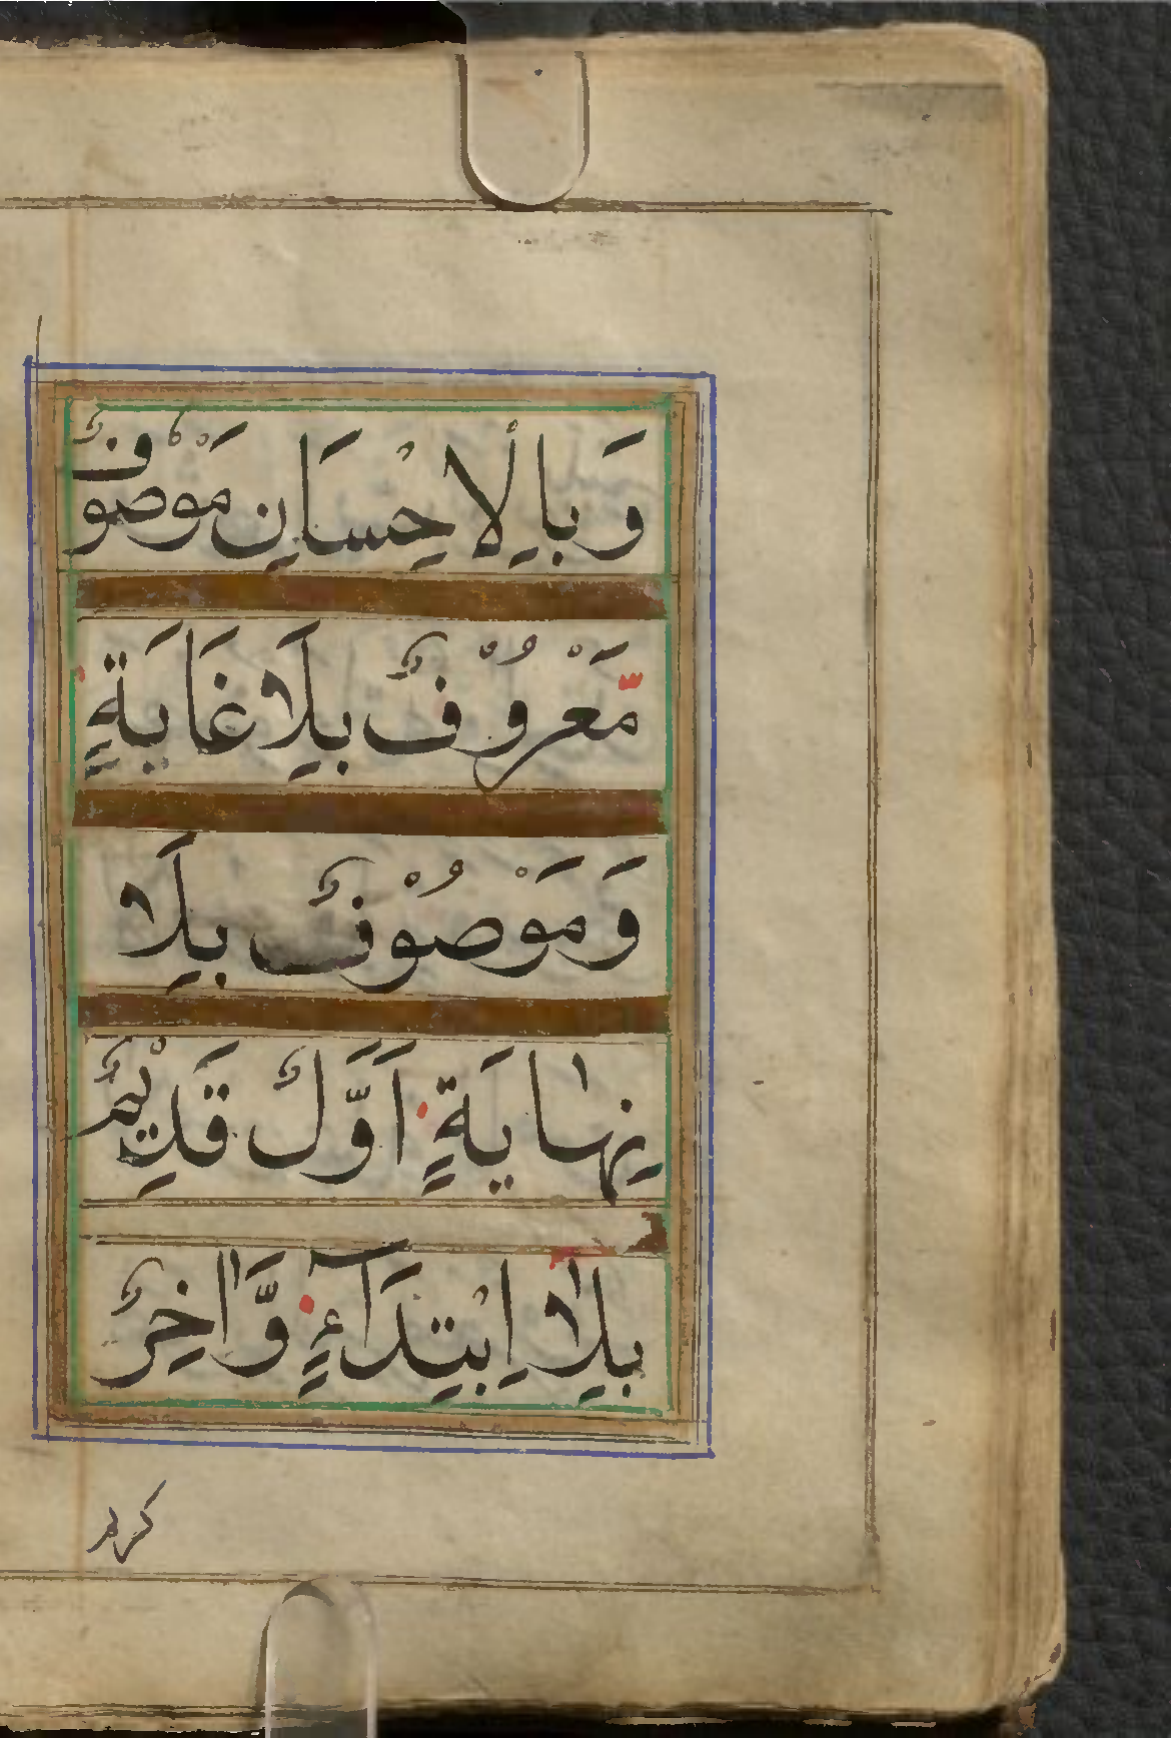 وَبِالْاِحْسَانِ مَوْصُوْفٌ
مَّعْرُوْفٌ بِلَا غَايَةٍ
وَمَوْصُوْفٌ بِلَا
نِهَايَةٍ اَوَّلٌ قَدِيْمٌ
بِلَا اِبْتِدَآءٍ وَّاٰخِرٌ
كريم